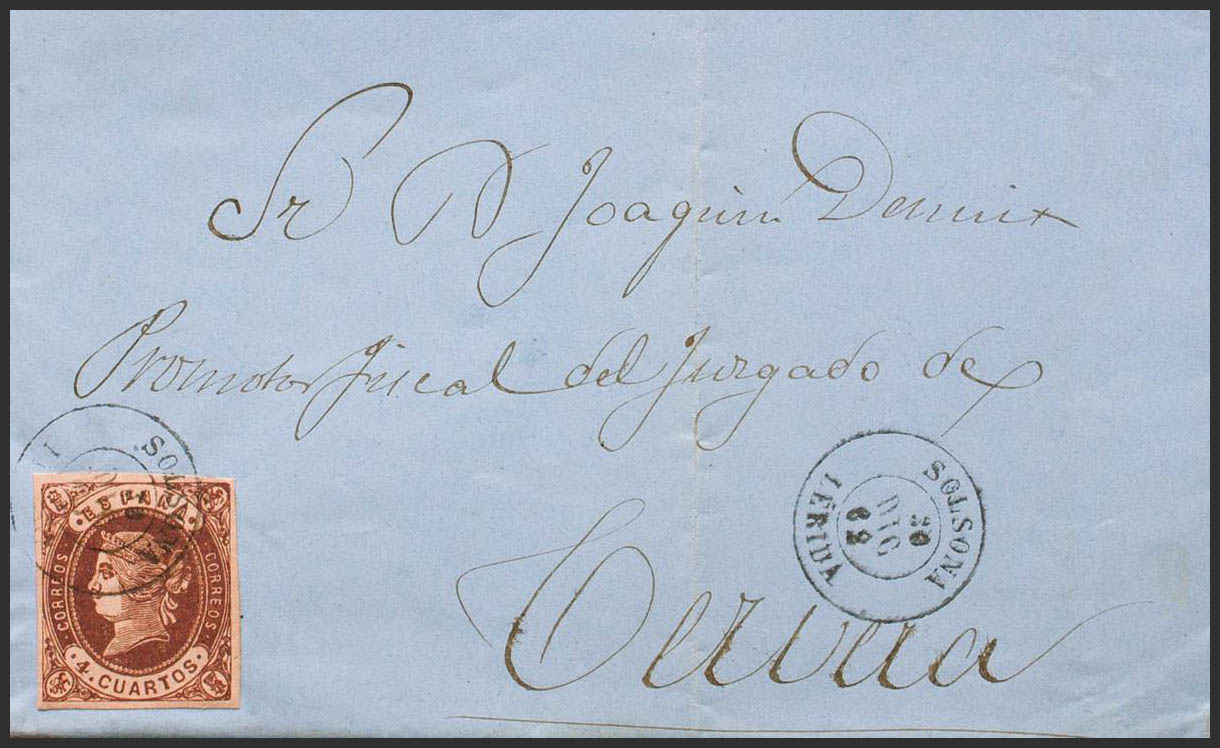 Sr D Joaquin
Promotor fiscal del Juzgado de
Cervera
SOLSONA
LERIDA
20
DIC
62
SOLSONA
ESPAÑA
CORREOS
CORREOS
4. CUARTOS